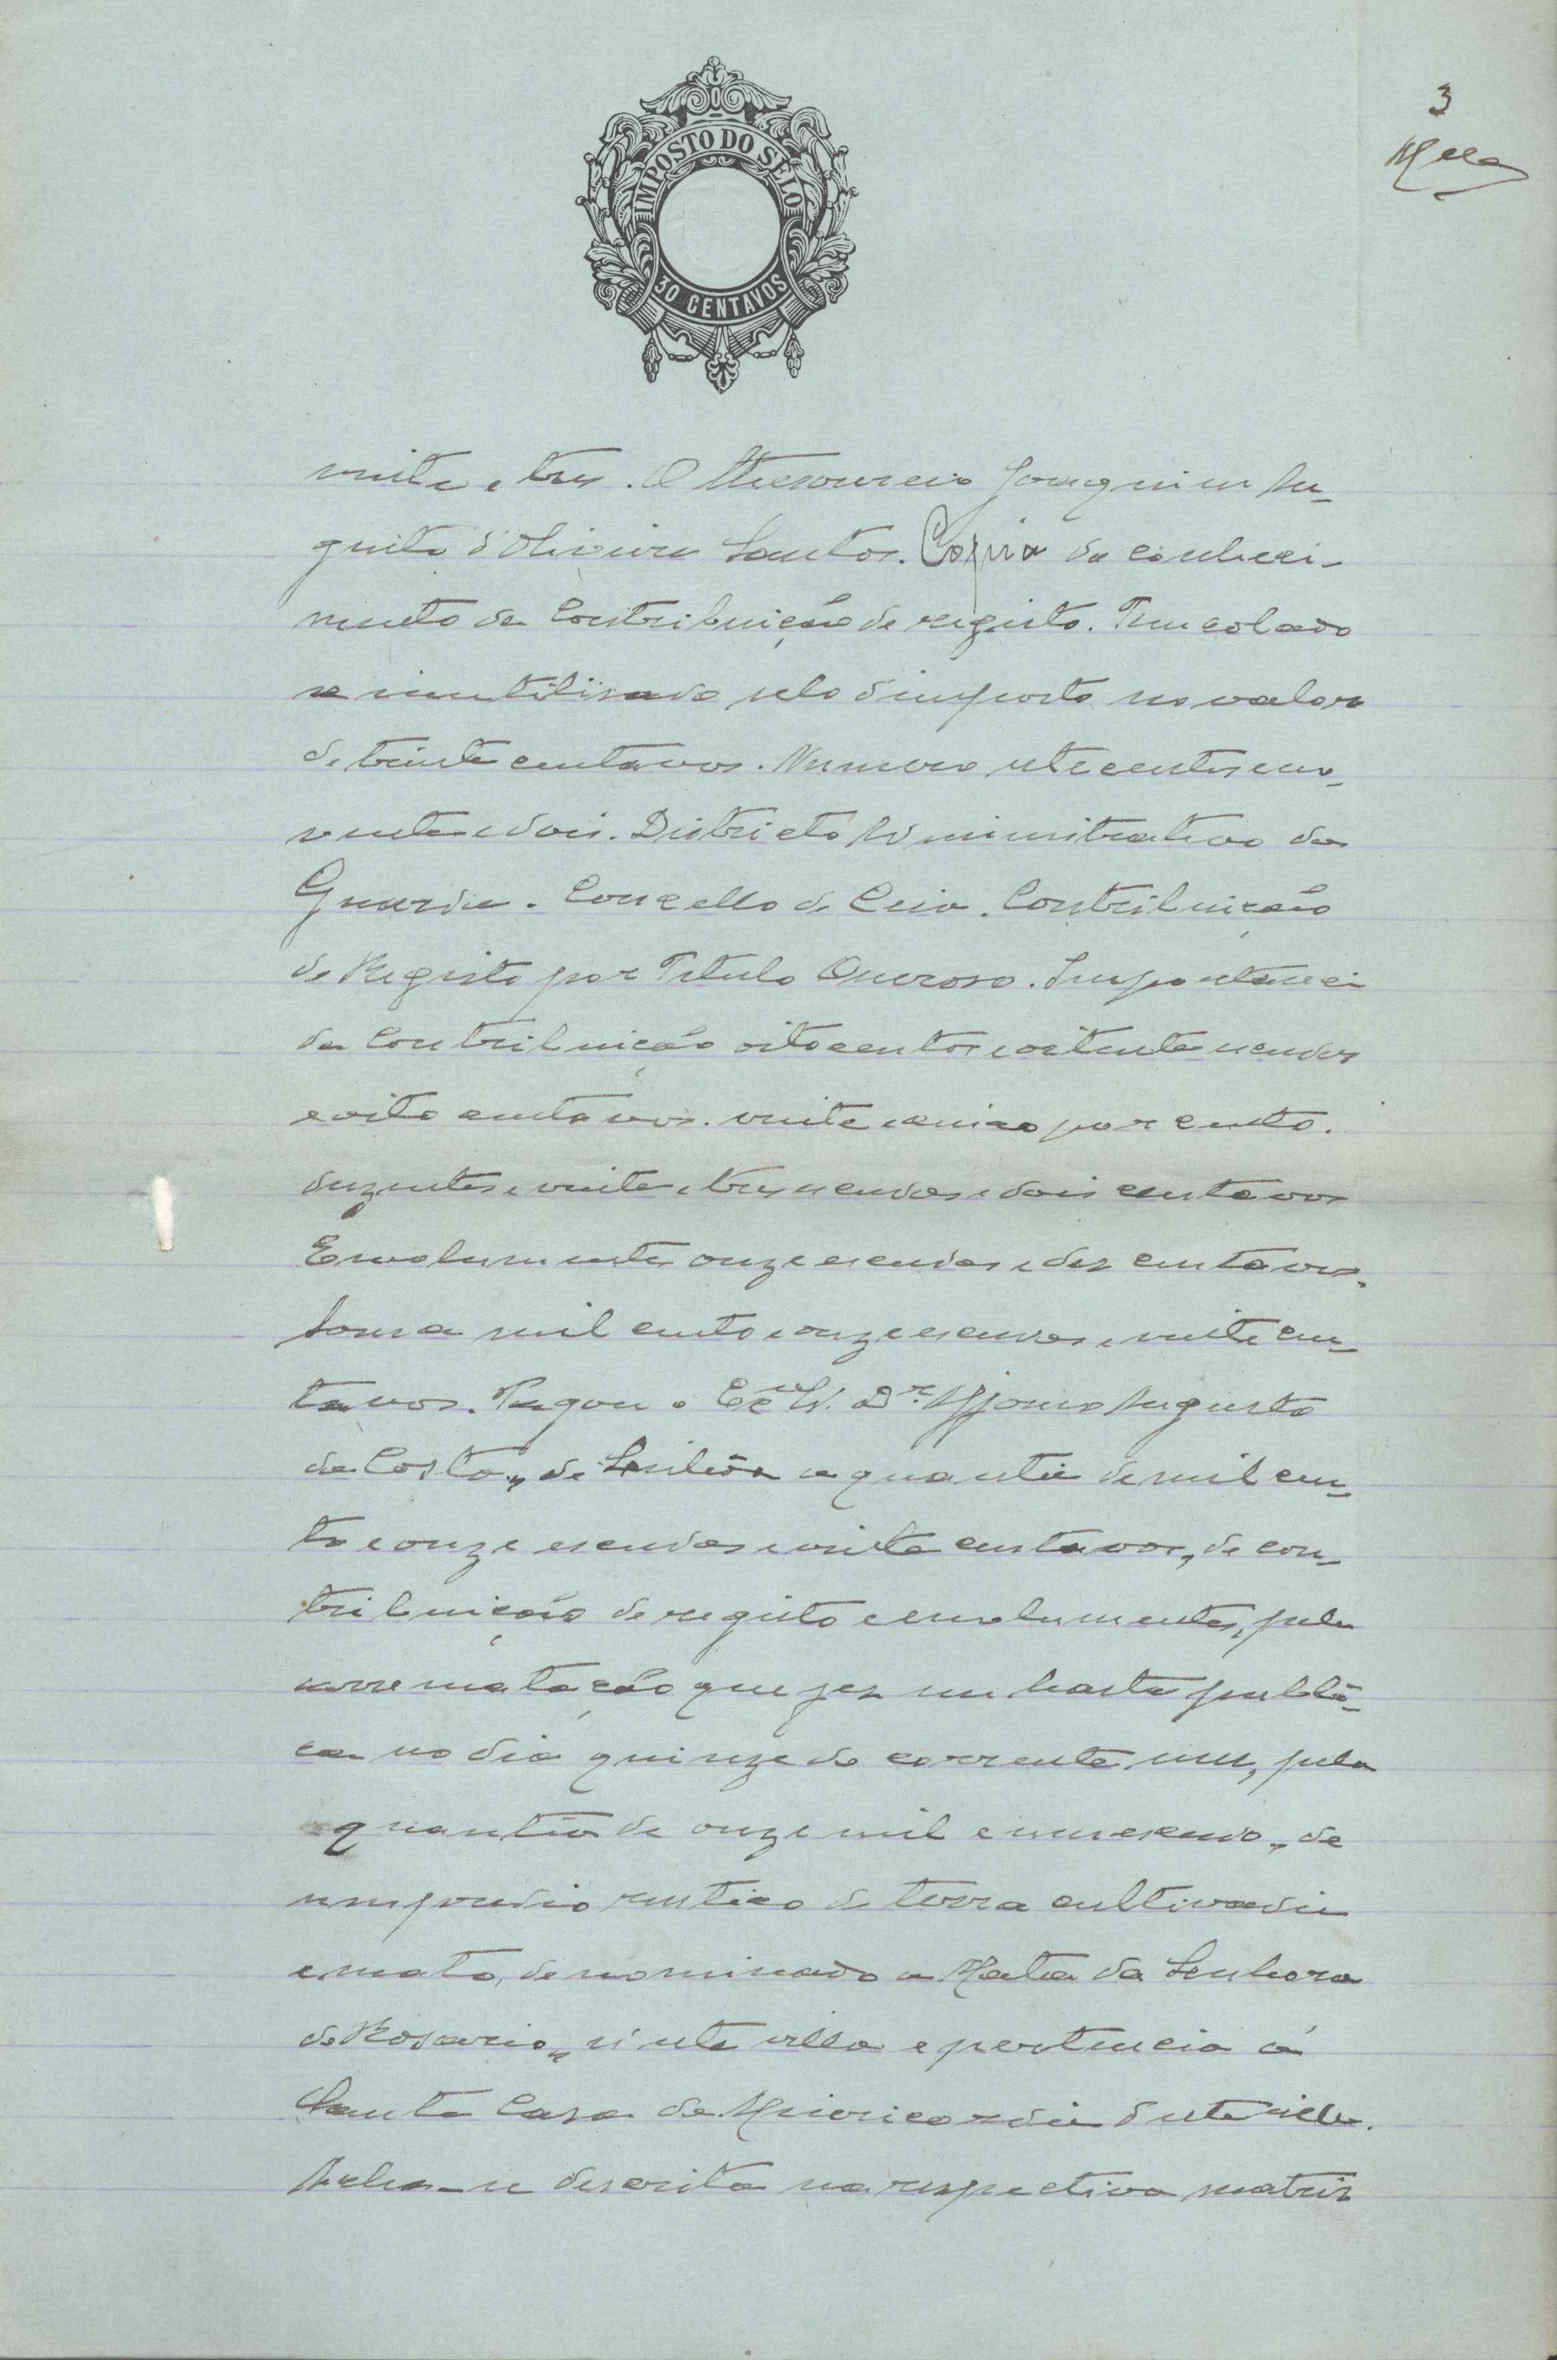 3
IMPOSTO DO SELO
30 CENTAVOS
vinte e tres. O Thesoureiro Joaquim Au-
gusto d'Oliveira Santos. Copia do conheci-
mento da Contribuição de registo. Tem colado
e inutilisado selo d'imposto no valor
de trinta centavos. Numero setecentos eno-
venta e dois. Districto Administrativo da
Guarda. Concelho de Ceia. Contribuição
de Registo por Titulo Oneroso. Importancia
da Contribuição oitocentos e oitenta escudos
e oito centavos. vinte e cinco por cento.
duzentos e vinte e tres escudos e dois centavos
Emolumentos onze escudos e dez centavos.
Soma mil cento e onze escudos e vinte cen-
tavos. Pagou o Ex.mo Sr. Dr. Affonso Augusto
da Costa, de Lisbôa a quantia de mil cen-
to e onze escudos e vinte centavos, de con-
tribuição de registo e emolumentos, pela
arrematação que fez em hasta publi-
ca no dia quinze do corrente mez, pela
quantia de onze mil e um escudo, de
um predio rustico de terra cultivadia
e mato, denominado a Mata da Senhora
do Rosario, n'esta villa e pertencia á
Santa Casa da Misericordia d'esta villa.
Acha-se descrita na respectiva matriz